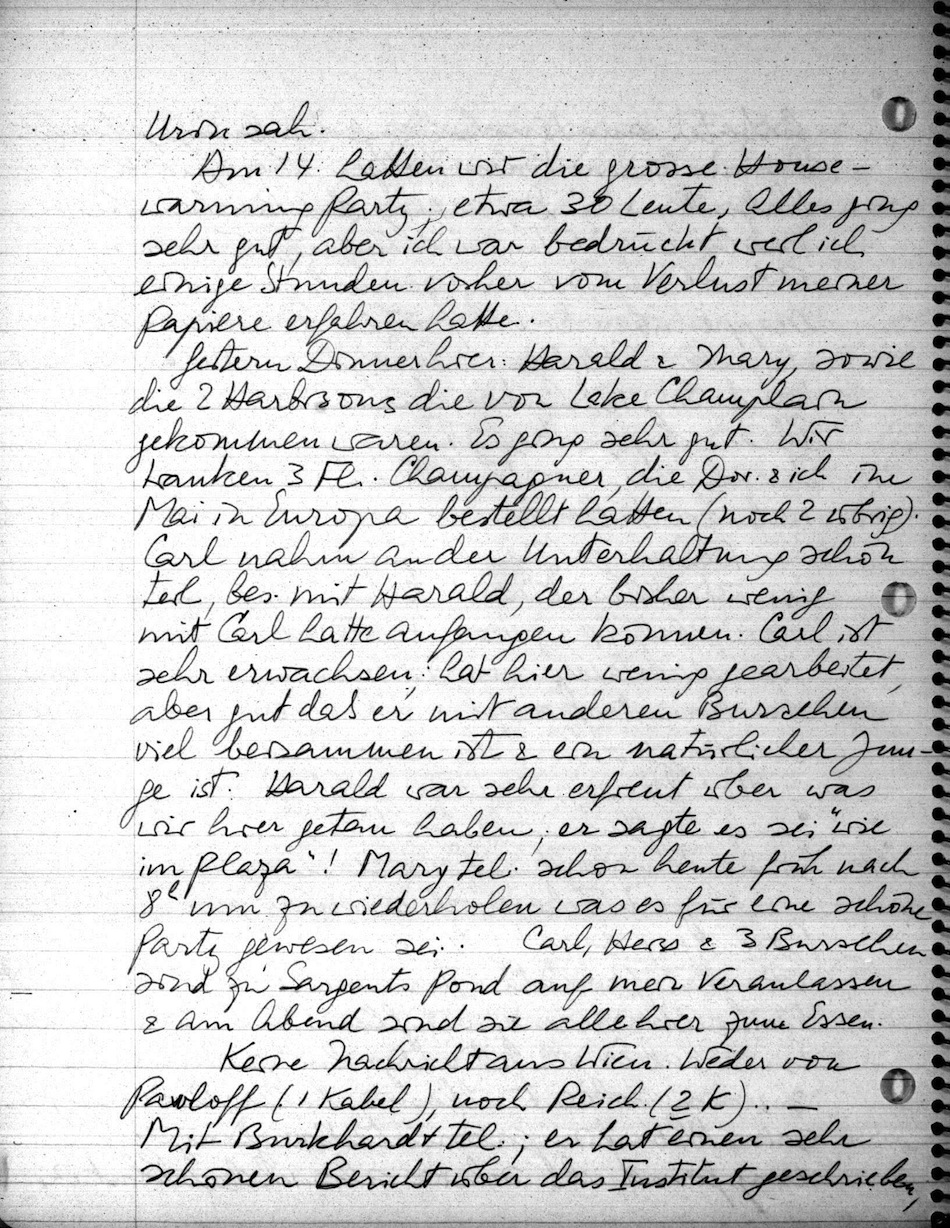 sah.
Am 14. hatten wir die grosse House-
warming Party; etwa 30 Leute, Alles ging
sehr gut, aber ich war bedrückt weil ich
einige Stunden vorher vom Verlust meiner
Papiere erfahren hatte.
Gestern Dinner hier: Harald & Mary, sowie
die 2 Harbisons die von Lake Champlain
gekommen waren. Es ging sehr gut. Wir
tranken 3 Fl. Champagner, die Dor. & ich im
Mai in Europa bestellt hatten (noch 2 übrig).
Carl nahm an der Unterhaltung schön
teil, bes. mit Harald, der bisher wenig
mit Carl hatte anfangen können. Carl ist
sehr erwachsen; hat hier wenig gearbeitet,
aber gut daß er mit anderen Burschen
viel beisammen ist & ein natürlicher Jun-
ge ist. Harald war sehr erfreut über was
wir hier getan haben; er sagte es sei "wie
im Plaza"! Mary tel. schon heute früh nach
8h um zu wiederholen was es für eine schöne
Party gewesen sei. Carl, & 3 Burschen
sind zu Sargents Pond auf mein Veranlassen
& am Abend sind sie alle hier zum Essen.
Keine Nachricht aus Wien. Weder von
Pawloff (1 Kabel), noch Reich (2 K)... —
Mit Burkhardt tel.; er hat einen sehr
schönen Bericht über das Institut geschrieben,